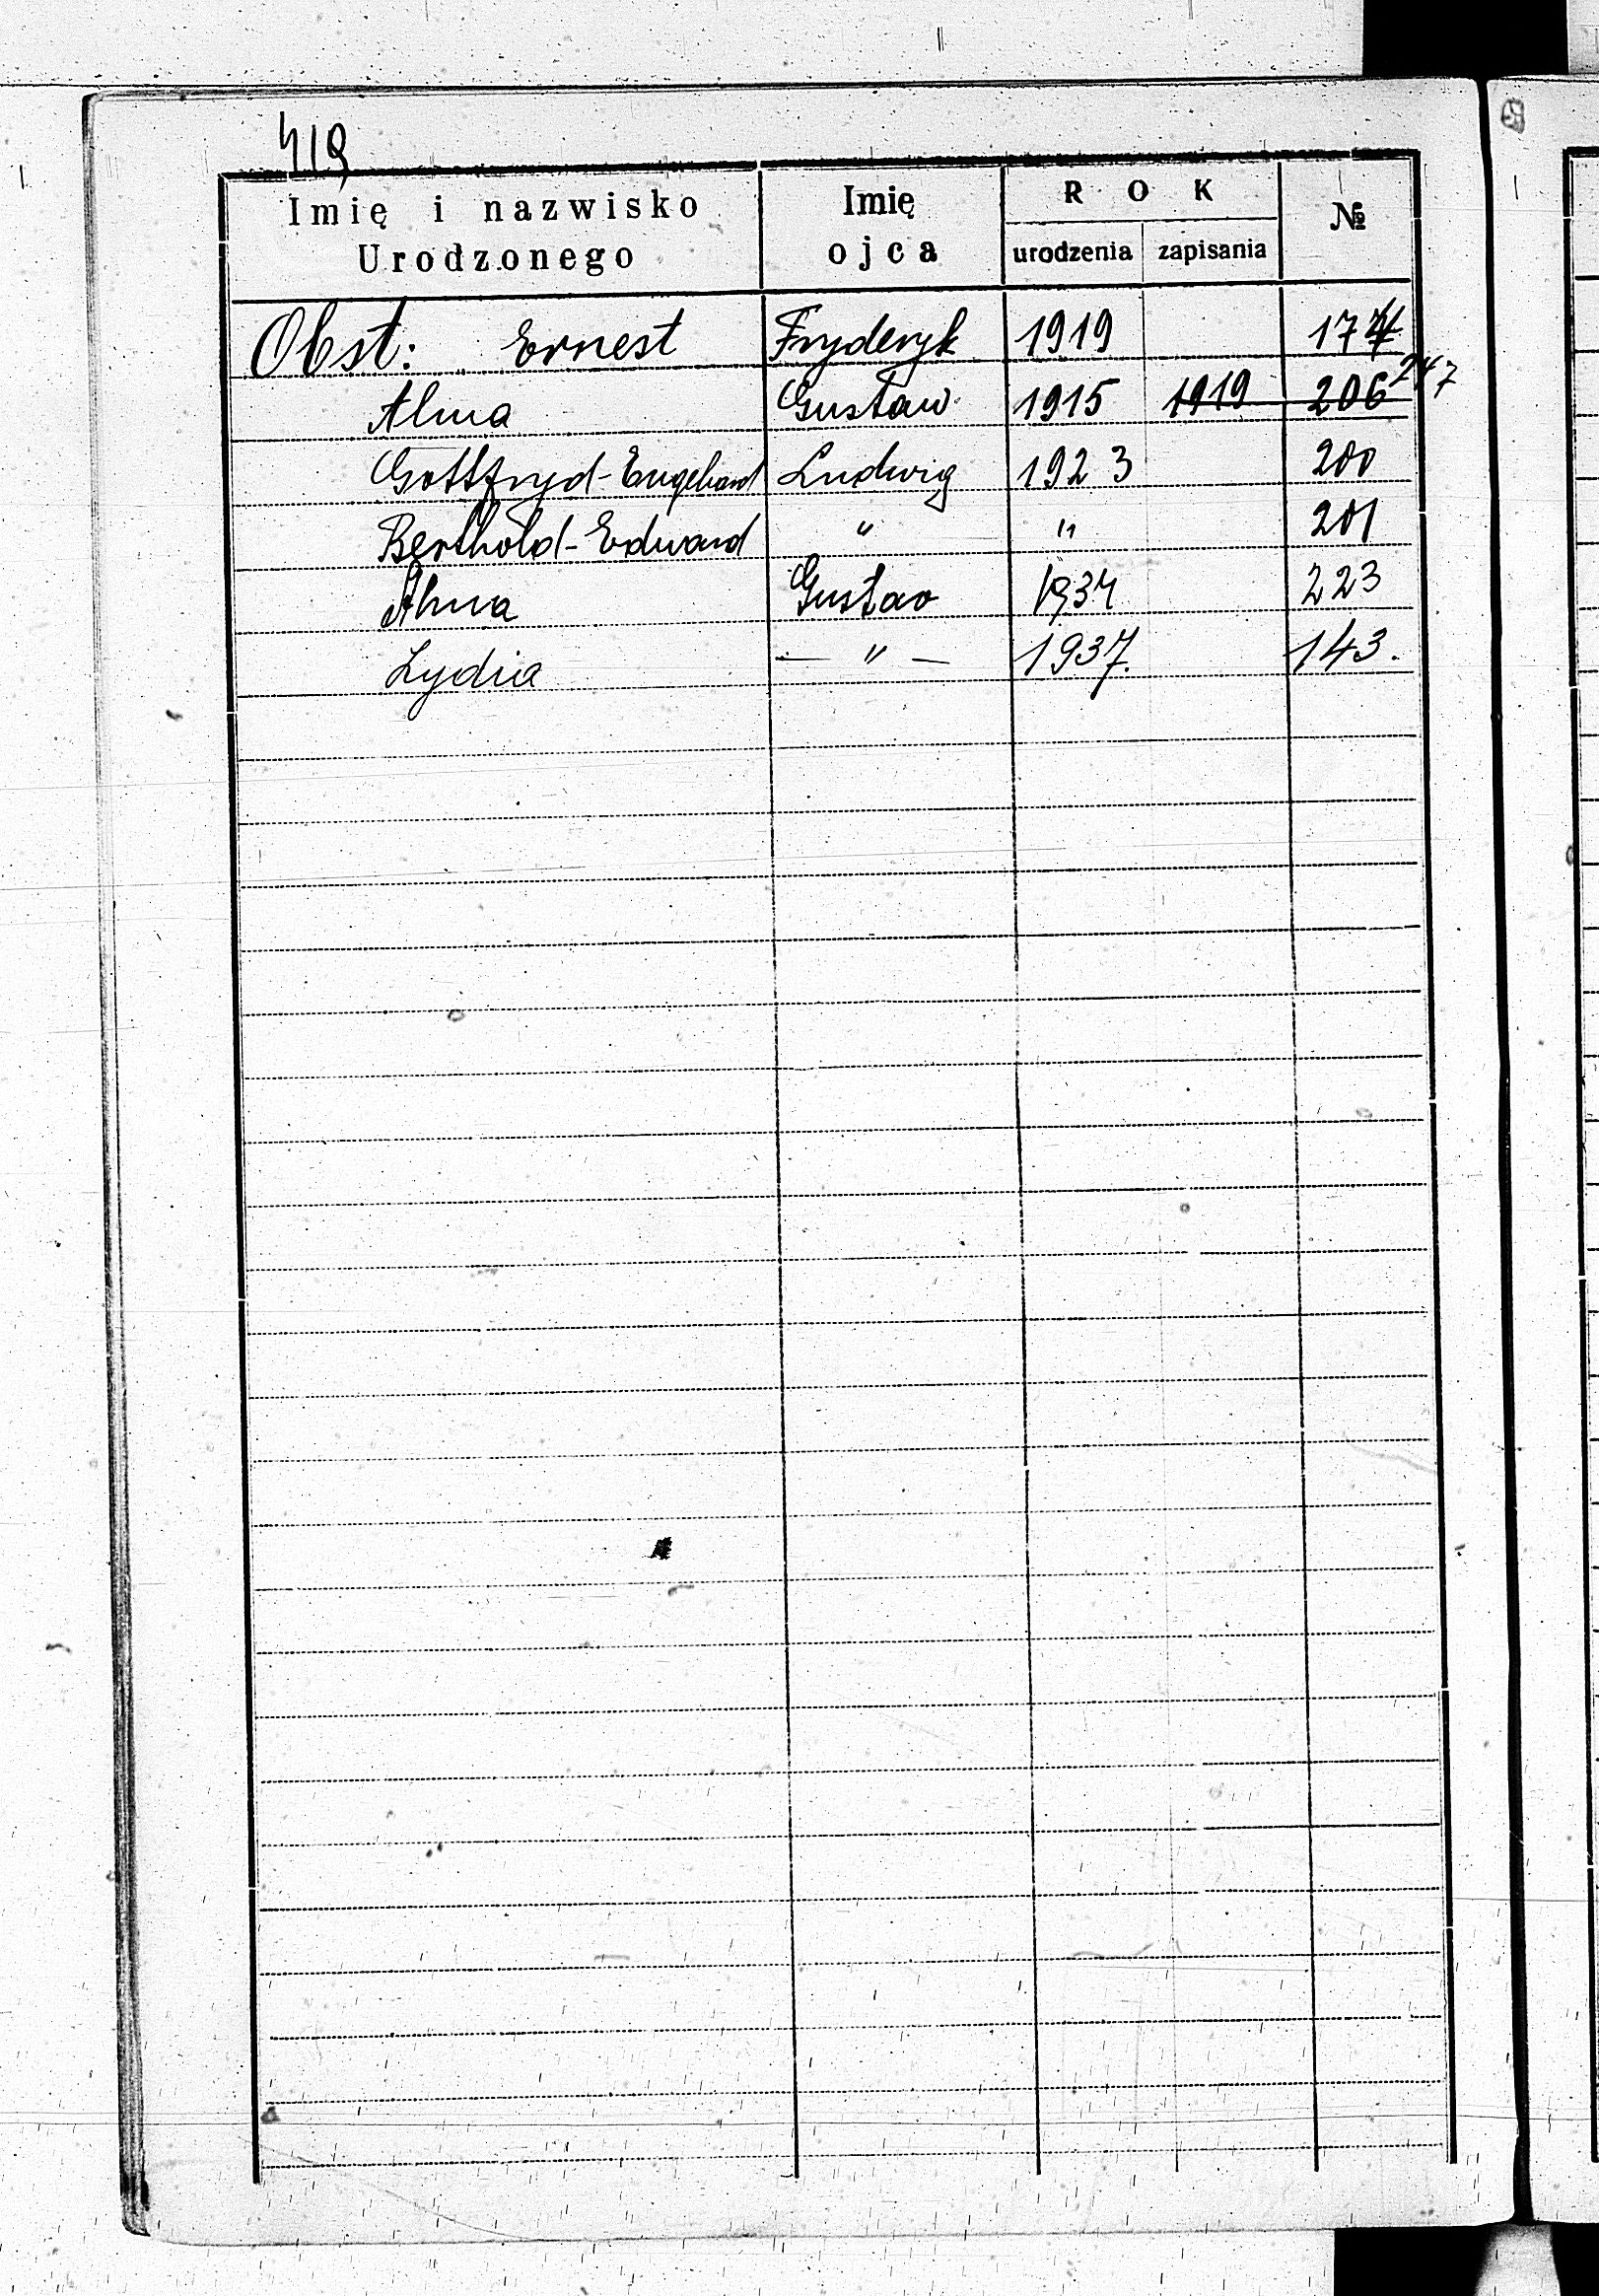 419
Imię i nazwisko Urodzonego | Imię ojca | ROK urodzenia | zapisania | №
Obst: Ernest Fryderyk 1919 174
Alma Gustaw 1915 1919 206 247
Gottfryd-Engelhard Ludwig 1923 200
Berthold-Edward " " 201
Alma Gustav 1934 223
Lydia — " — 1937. 143.